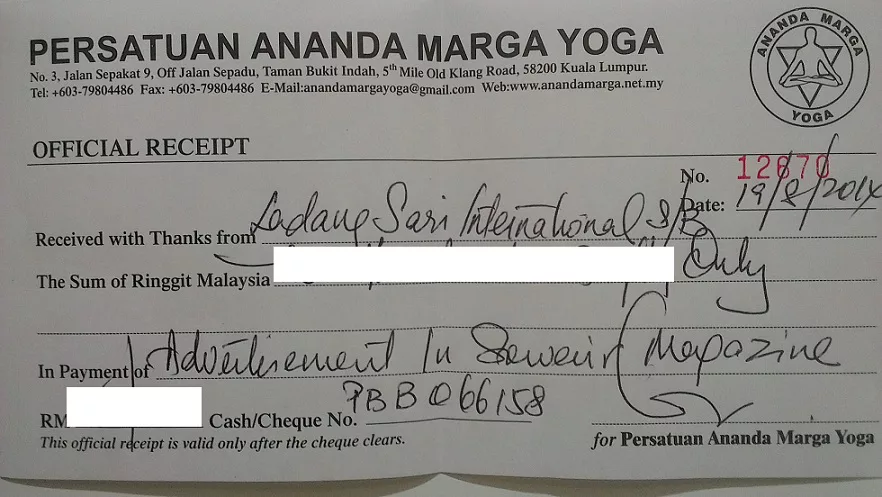 PERSATUAN ANANDA MARGA YOGA
No. 3, Jalan Sepakat 9, Off Jalan Sepadu, Taman Bukit Indah, 5th Mile Old Klang Road, 58200 Kuala Lumpur.
Tel: +603-79804486 Fax: +603-79804486 E-Mail:anandamargayoga@gmail.com Web:www.anandamarga.net.my
ANANDA MARGA
YOGA
OFFICIAL RECEIPT
No. 12670
Date: 19/8/201
Received with Thanks from Ladang Sari International S/B
The Sum of Ringgit Malaysia Only
In Payment of Advertisement In Magazine
RM Cash/Cheque No. PBB 066158
This official receipt is valid only after the cheque clears.
for Persatuan Ananda Marga Yoga